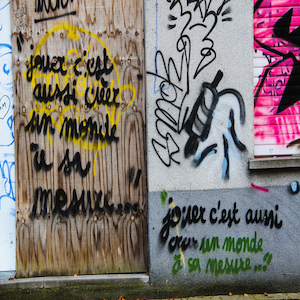 jouer c'est
aussi créer
un monde
"à sa
mesure..."
"jouer c'est aussi
créer un monde
à sa mesure..."